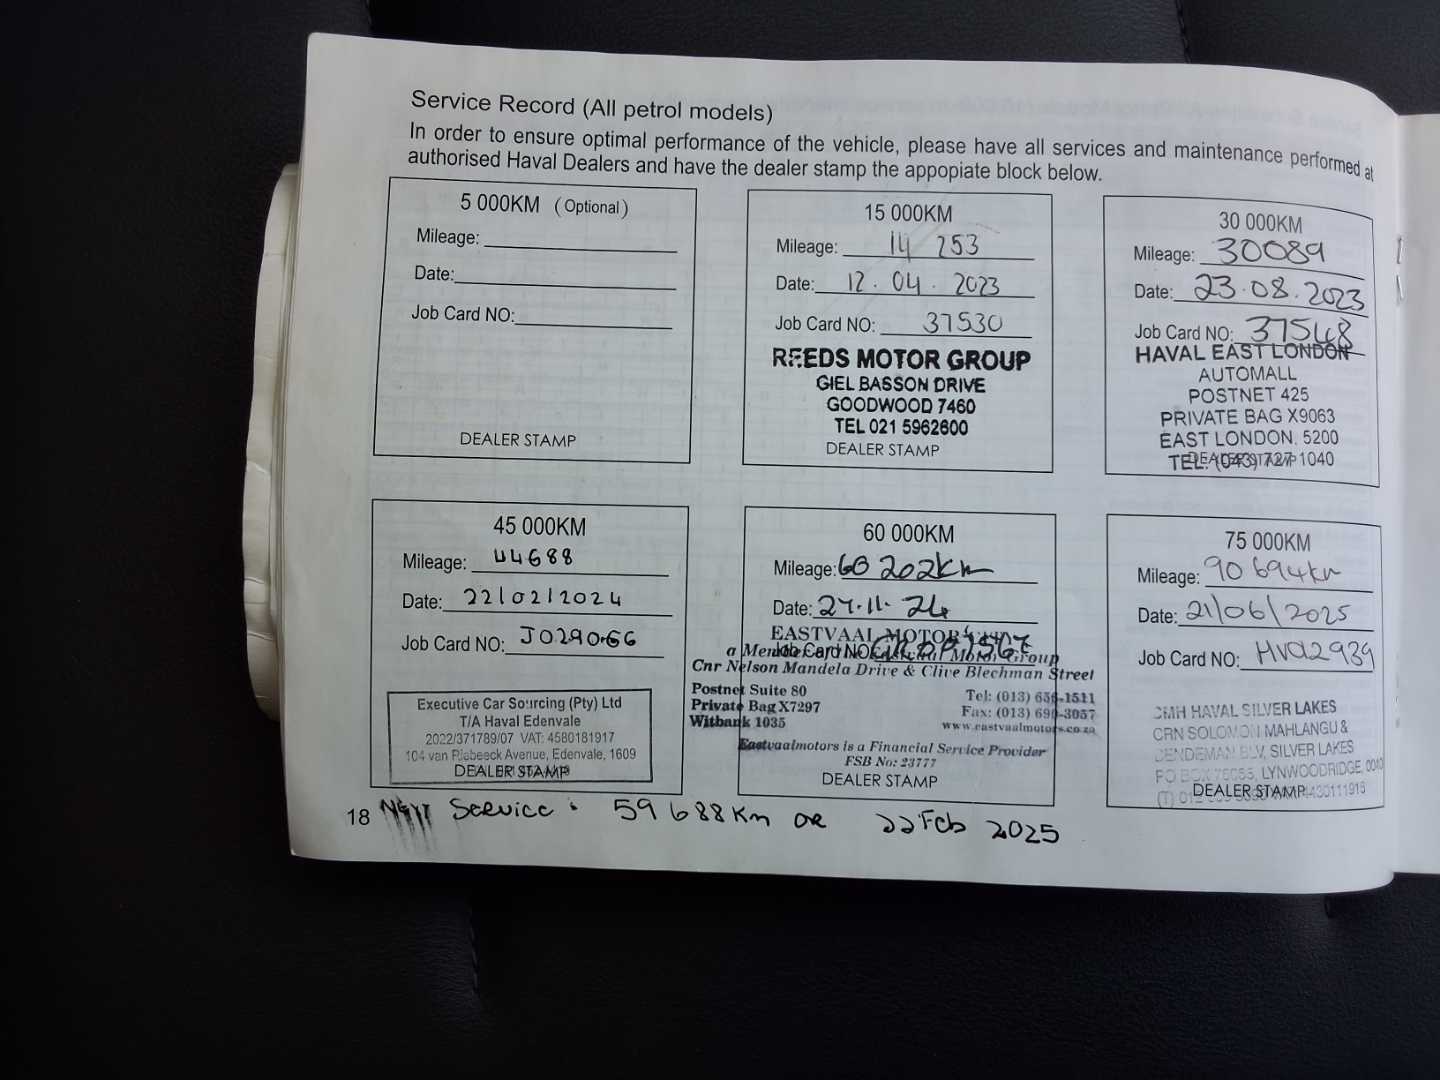 Service Record (All petrol models)
In order to ensure optimal performance of the vehicle, please have all services and maintenance performed at
authorised Haval Dealers and have the dealer stamp the appopiate block below.
5 000KM (Optional)
Mileage:
Date:
Job Card NO:
DEALER STAMP
15 000KM
Mileage: 14 253
Date: 12.04.2023
Job Card NO: 37530
REEDS MOTOR GROUP
GIEL BASSON DRIVE
GOODWOOD 7460
TEL 021 5962600
DEALER STAMP
30 000KM
Mileage: 30089
Date: 23.08.2023
Job Card NO: 37548
HAVAL EAST LONDON
AUTOMALL
POSTNET 425
PRIVATE BAG X9063
EAST LONDON. 5200
TEL: (043) 727 1040
DEALER STAMP
45 000KM
Mileage: 44688
Date: 22/02/2024
Job Card NO: J029066
Executive Car Sourcing (Pty) Ltd
T/A Haval Edenvale
2022/371789/07 VAT: 4580181917
104 van Riebeeck Avenue, Edenvale, 1609
DEALER STAMP
60 000KM
Mileage: 60 202km
Date: 27.11.24
Job Card NO:
EASTVAAL MOTORS
a Member of the Eastvaal Motor Group
Cnr Nelson Mandela Drive & Clive Blechman Street
Postnet Suite 80 Tel: (013) 656-1511
Private Bag X7297 Fax: (013) 690-3057
Witbank 1035 www.eastvaalmotors.co.za
Eastvaalmotors is a Financial Service Provider
FSB No: 23777
DEALER STAMP
75 000KM
Mileage: 90 694km
Date: 21/06/2025
Job Card NO: HV02939
CMH HAVAL SILVER LAKES
CRN SOLOMON MAHLANGU &
DENDEMAN BLV, SILVER LAKES
PO BOX LYNWOODRIDGE, 0040
DEALER STAMP
18 Next Service: 59 688 Km or 22 Feb 2025